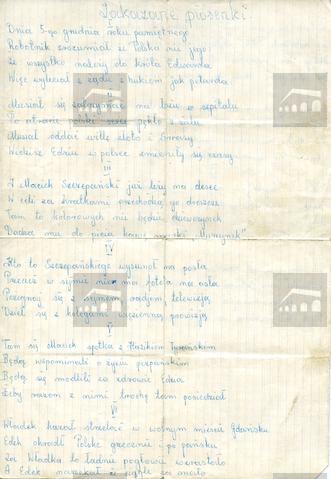 Zakazane piosenki
Dnia 5-go grudnia roku pamiętnego
Robotnik zrozumiał że Polska nie jego
Że wszystko należy do króla Edwarda
Więc wyleciał z rządu z hukiem jak petarda
II
Musiał się zatrzymać na łożu w szpitalu
Po utracie polski serce pękło z żalu
Musiał oddać wille złoto i
Widzisz Edziu w polsce zmieniły się czasy
III
A Maciek Szczepański już leży na desce
W celi za kratkami przechodzą go dreszcze
Tam to kolorowych nie będzie dziewczynek
Dadzą mu do picia kawę "Murzynek"
IV
Kto to Szczepańskiego wysunął na posła
Przecież w sejmie nie ma fotela na osła
Pożegnaj się z sejmem radiem, telewizją
Dziel się z kolegami więzienną prowizją
V
Tam się Maciek spotka z Tyrańskim
Będą wspominali o życiu
Będą się modlili za zdrowie Edzia
Żeby razem z nimi trochę tam posiedział
VI
Władek kazał strzelać w wolnym mieście Gdańsku
Edek okradł Polskę grzecznie i po pańsku
Za Władka to ładnie pogłowie wzrastało
A Edek narzekał że ciągle za mało